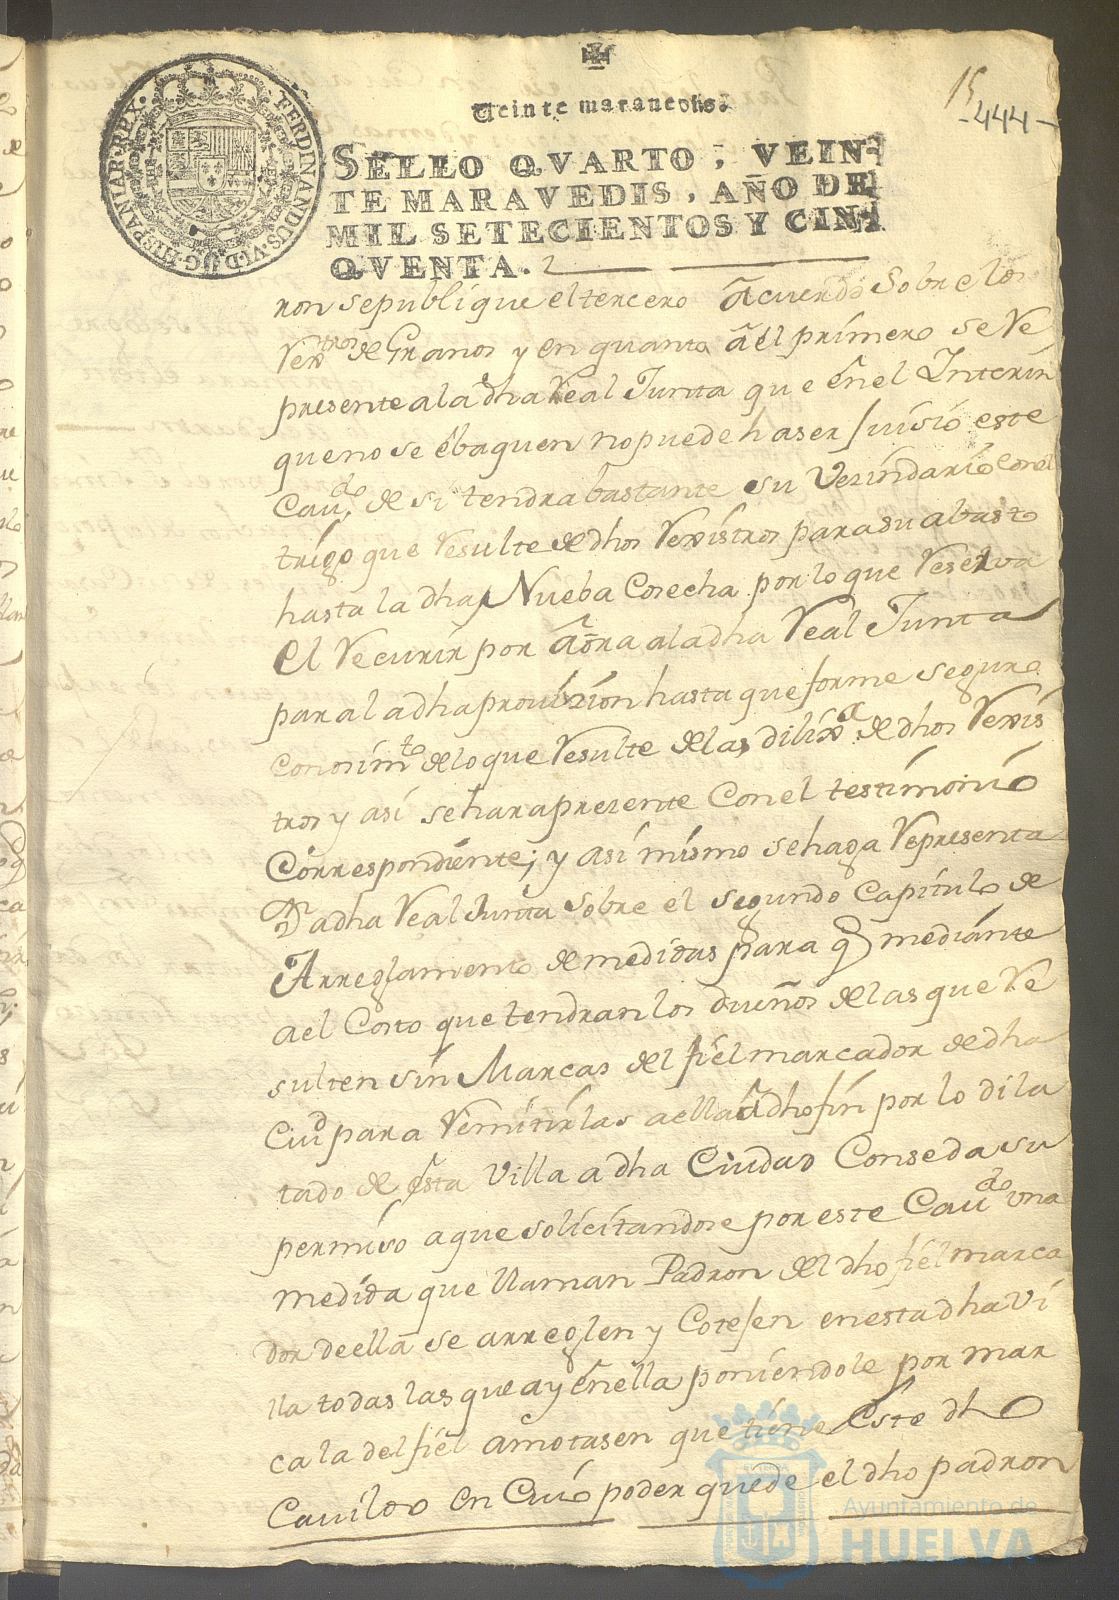 15
-444-
Veinte maravedis.
SELLO QVARTO, VEIN-
TE MARAVEDIS, AÑO DE
MIL SETECIENTOS Y CIN-
QVENTA.
FERDINANDUS·VI·D·G·HISPANIAR·REX·
ron sepublique el tercero Acuerdo Sobre los
Rexros de Granos y en quanto a el primero se Re
presente a la dha Real Junta que en el Interin
que no se ebaquen no puede haser juisio este
Cauo de si tendra bastante su Vezindario con el
trigo que Resulte de dhos Rexistros para su abasto
hasta la dha Nueba Cosecha por lo que Reserva
el Recurir por Aora a la dha Real Junta
para la dha proubizion hasta que forme seguro
Conosimto de lo que Resulte de las dilixas de dhos Rexis
tros y asi se hara prezente Con el testimonio
Correspondiente; y asi mismo se haga Representa
on a dha Real Junta sobre el segundo Capitulo de
Arreglamento de medidas para q mediante
a el Costo que tendran los dueños de las que Re
sulten sin Marcas del fiel marcador de dha
Ciud para Remitirlas a ella a dho fin por lo dila
tado de esta Villa a dha Ciudad Conseda su
permiso a que solicitandose por este Cauo una
medida que llaman Padron del dho fiel marca
dor de ella se arreglen y Cotejen en esta dha Vi
lla todas las que ay en ella poniendole por mar
ca la del fiel amotasen que tiene Este dho
Cavildo en Cuio poder quede el dho padron
Ayuntamiento de
HUELVA